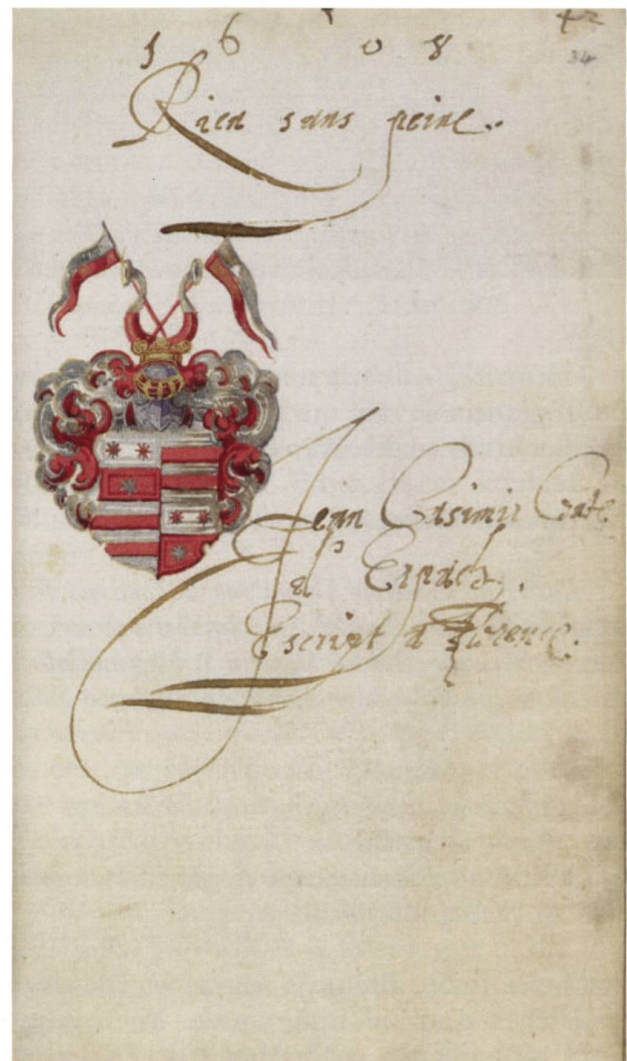 42
34
1608
Rien sans peine.
Jean Casimir Conte
d'Erpach.
Escript a Florence.